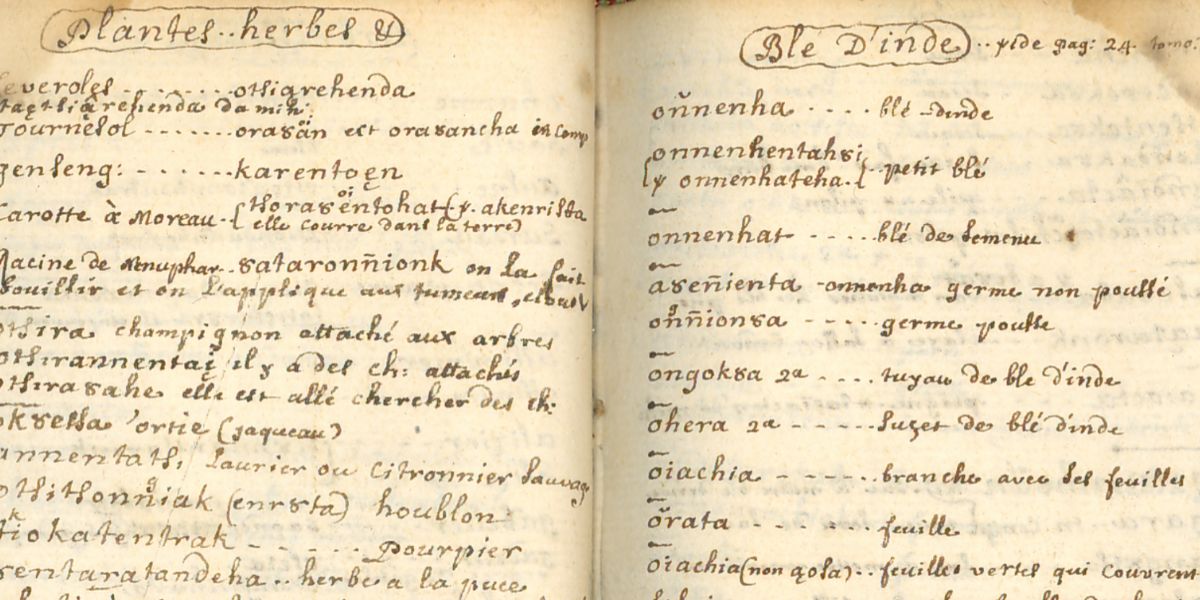 Plantes.. herbes &
feveroles - - - - - - - othiarehenda
Tournesol - - - - - - - orasan est orasancha in comp
genseng: - - - - - - - karentoen
Carotte à Moreau. - { thorasentohat (ȣ. akenrista
elle courre dans la terre)
Racine de nenuphar.. sataronñionk on la fait
bouillir et on l'applique aux tumeurs,
othira champignon attaché aux arbres
othirannentai il y a des ch: attachés
othirasahe elle est allé chercher des ch:
oksetha ortie (jaqueau)
annentathi laurier ou Citronnier sauvag
othithonniak (enrsta) houblon
tiokatentrak - - - - - - Pourpier
sentaratandeha.. herbe a la puce
Blé D'inde.. vide pag: 24. tome.
onnenha - - - - blé -dinde
onnenhentahsi
onnenhateha. } petit blé
onnenhat - - - - - blé de semence
aseñienta -onnenha germe non poussé
oñnionsa - - - - - germe pousse
ongoksa 2a - - - - tuyau de ble d'inde
ohera 2a - - - - - - de blé d'inde
oiachia - - - - - - branche avec ses feuilles
orata - - - - - - - - feuille
oiachia (non osa).. feuilles vertes qui couvrent